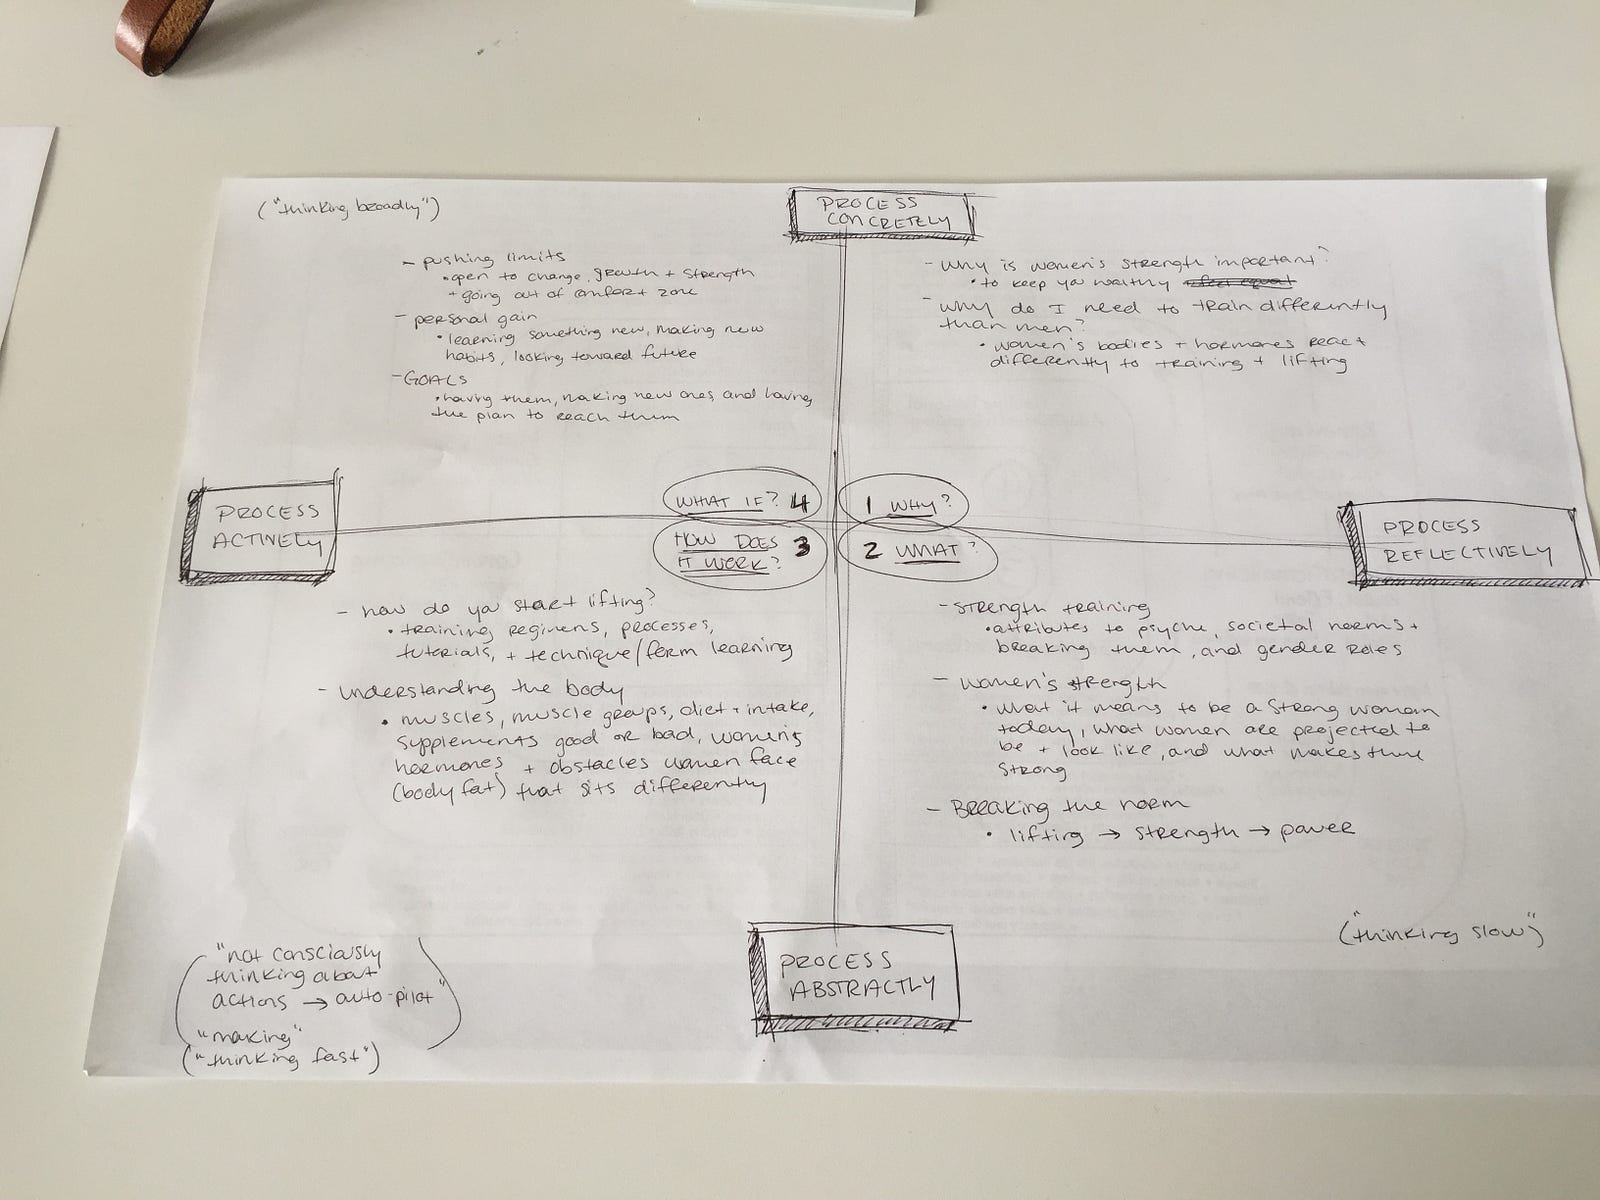 ("thinking broadly")
PROCESS
CONCRETELY
- pushing limits
• open to change, growth + strength
+ going out of comfort zone
- personal gain
• learning something new, making new
habits, looking toward future
- GOALS
• having them, making new ones, and having
the plan to reach them
- Why is women's strength important?
• to keep you healthy
- Why do I need to train differently
than men?
• women's bodies + hormones react
differently to training + lifting
WHAT IF? 4
1 WHY?
PROCESS
ACTIVELY
HOW DOES 3
IT WORK?
2 WHAT?
PROCESS
REFLECTIVELY
- how do you start lifting?
• training regimens, processes,
tutorials, + technique/form learning
- understanding the body
• muscles, muscle groups, diet + intake,
supplements good or bad, women's
hormones + obstacles women face
(body fat) that sits differently
- strength training
• attributes to psyche, societal norms +
breaking them, and gender roles
- women's strength
• what it means to be a strong woman
today, what women are projected to
be + look like, and what makes them
strong
- Breaking the norm
• lifting → strength → power
("thinking slow")
"not consciously
thinking about
actions → auto-pilot"
"making"
("thinking fast")
PROCESS
ABSTRACTLY